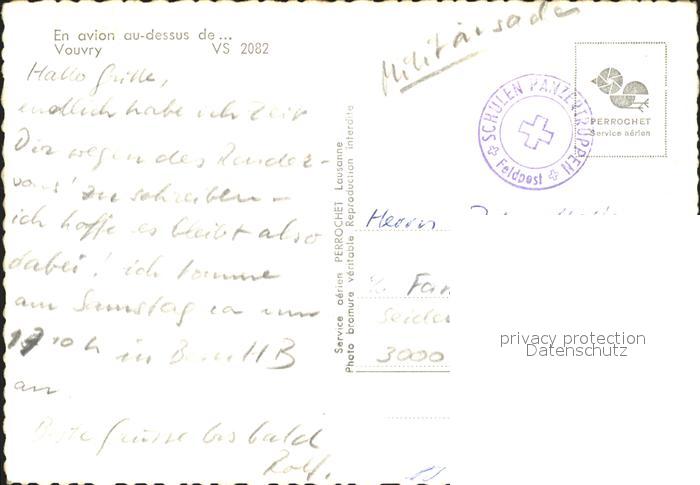 En avion au-dessus de...
Vouvry VS 2082
Militärsache
Hallo
endlich habe ich Zeit
Dir wegen des Rendez-
vous' zu schreiben -
ich hoffe es bleibt also
dabei! ich komme
am Samstag ca um
10 h in Bern HB
an.
Beste Grüsse bis bald
Rolf.
Service aérien PERROCHET Lausanne
Photo bromure véritable Reproduction interdite
SCHULEN PANZERTRUPPEN
Feldpost
PERROCHET
Service aérien
Herrn
c/o Fam
Seiden
3000
privacy protection
Datenschutz